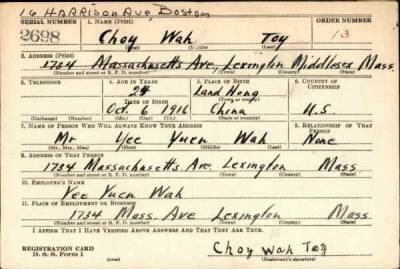 16 HARRISON AVE, BOSTON
SERIAL NUMBER 1. NAME (Print) ORDER NUMBER
2698 Choy Wah Toy 13
(First) (Middle) (Last)
2. ADDRESS (Print)
1734 Massachusetts Ave, Lexington Middlesex Mass.
(Number and street or R. F. D. number) (Town) (County) (State)
3. TELEPHONE 4. AGE IN YEARS 5. PLACE OF BIRTH 6. COUNTRY OF CITIZENSHIP
24 Land Hong
DATE OF BIRTH (Town or county)
Oct 6 1916 China U.S.
(Exchange) (Number) (Mo.) (Day) (Yr.) (State or country)
7. NAME OF PERSON WHO WILL ALWAYS KNOW YOUR ADDRESS 8. RELATIONSHIP OF THAT PERSON
Mr Yee Yuen Wah None
(Mr., Mrs., Miss) (First) (Middle) (Last)
9. ADDRESS OF THAT PERSON
1734 Massachusetts Ave Lexington Mass
(Number and street or R. F. D. number) (Town) (County) (State)
10. EMPLOYER'S NAME
Yee Yuen Wah
11. PLACE OF EMPLOYMENT OR BUSINESS
1734 Mass. Ave Lexington Mass.
(Number and street or R. F. D. number) (Town) (County) (State)
I AFFIRM THAT I HAVE VERIFIED ABOVE ANSWERS AND THAT THEY ARE TRUE.
REGISTRATION CARD
D. S. S. Form 1
Choy Wah Toy
(Registrant's signature)